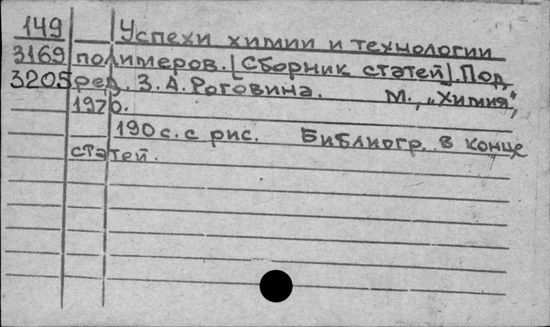 149 Успехи химии и технологии
3169 полимеров. [Сборник статей]. Под
3205 ред. З. А. Роговина. М., „Химия",
1970.
190 с. с рис. Библиогр. в конце
статей.